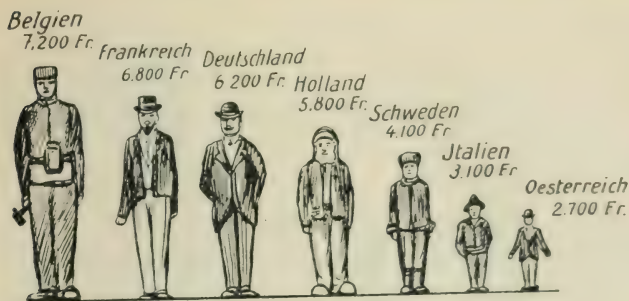 Belgien
7,200 Fr.
Frankreich
6.800 Fr.
Deutschland
6 200 Fr.
Holland
5.800 Fr.
Schweden
4.100 Fr
Jtalien
3.100 Fr
Oesterreich
2.700 Fr.